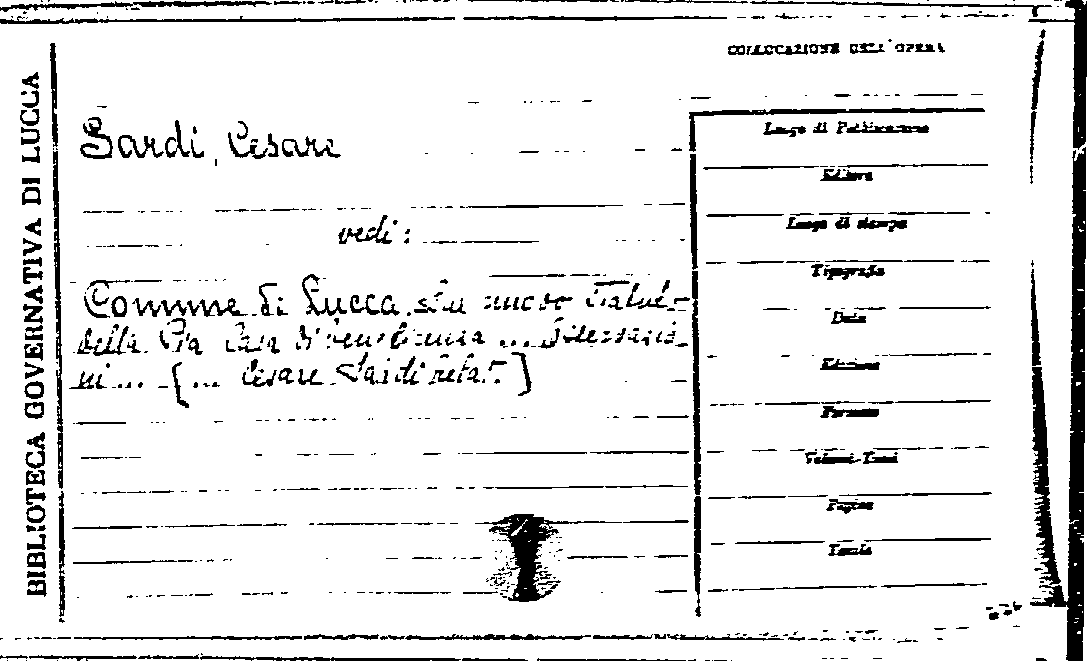 BIBLIOTECA GOVERNATIVA DI LUCCA
COLLOCAZIONE DELL'OPERA
Sardi, Cesare
vedi:
Comune di Lucca. Sul nuovo Statuto
della Pia Casa di beneficenza ...
ni ... [... Cesare Sardi relat.]
Luogo di Pubblicazione
Editore
Luogo di stampa
Tipografia
Data
Edizione
Formato
Volumi-Tomi
Pagine
Tavole